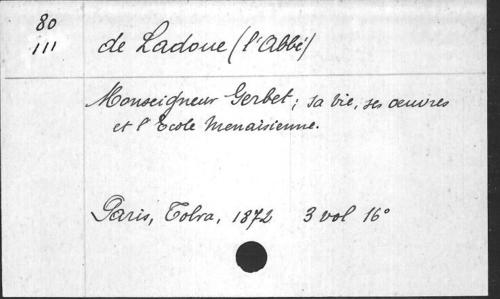 80
111
de Ladoue (l'Abbé)
Monseigneur Gerbet; sa vie, ses œuvres
et l'Ecole Menaisienne.
Paris, Tolra, 1872 3 vol 16°